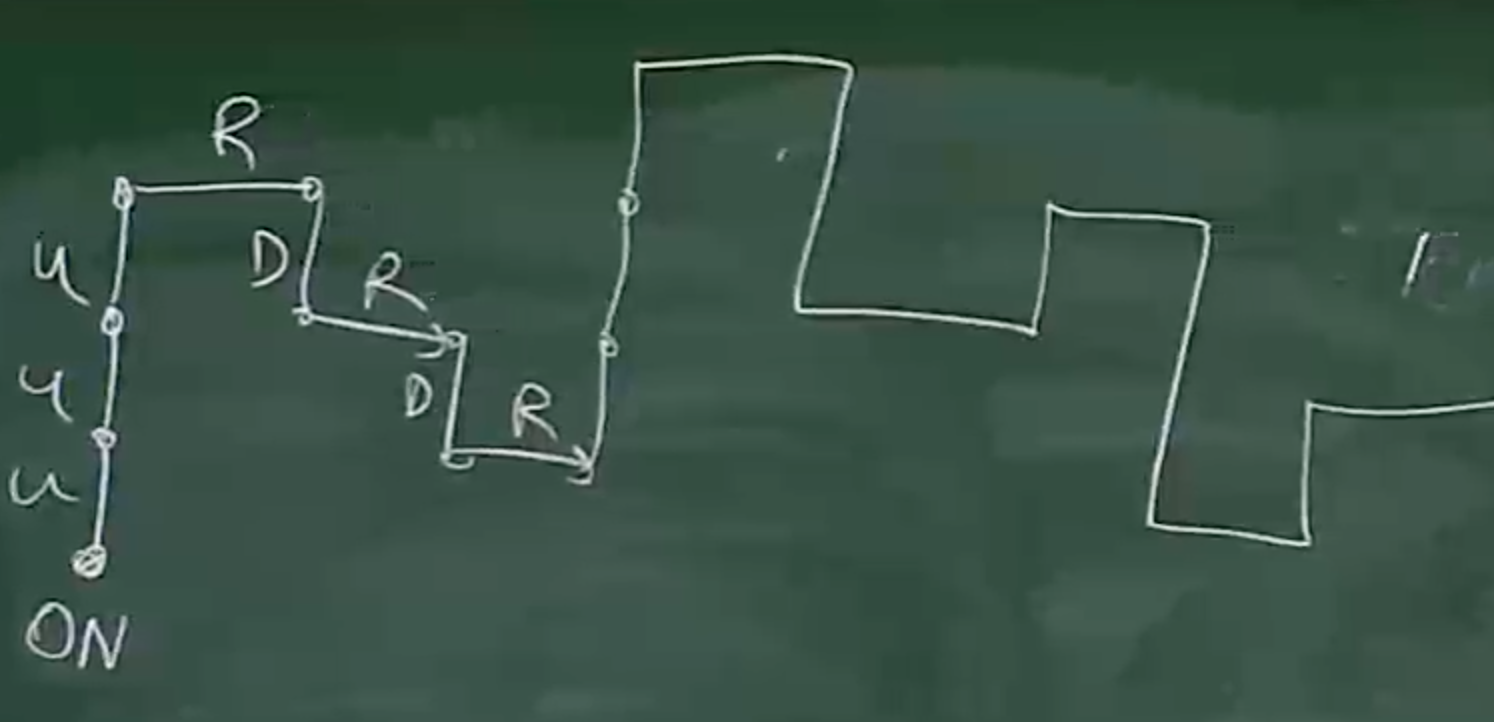 R
U
D
R
U
D
R
U
ON